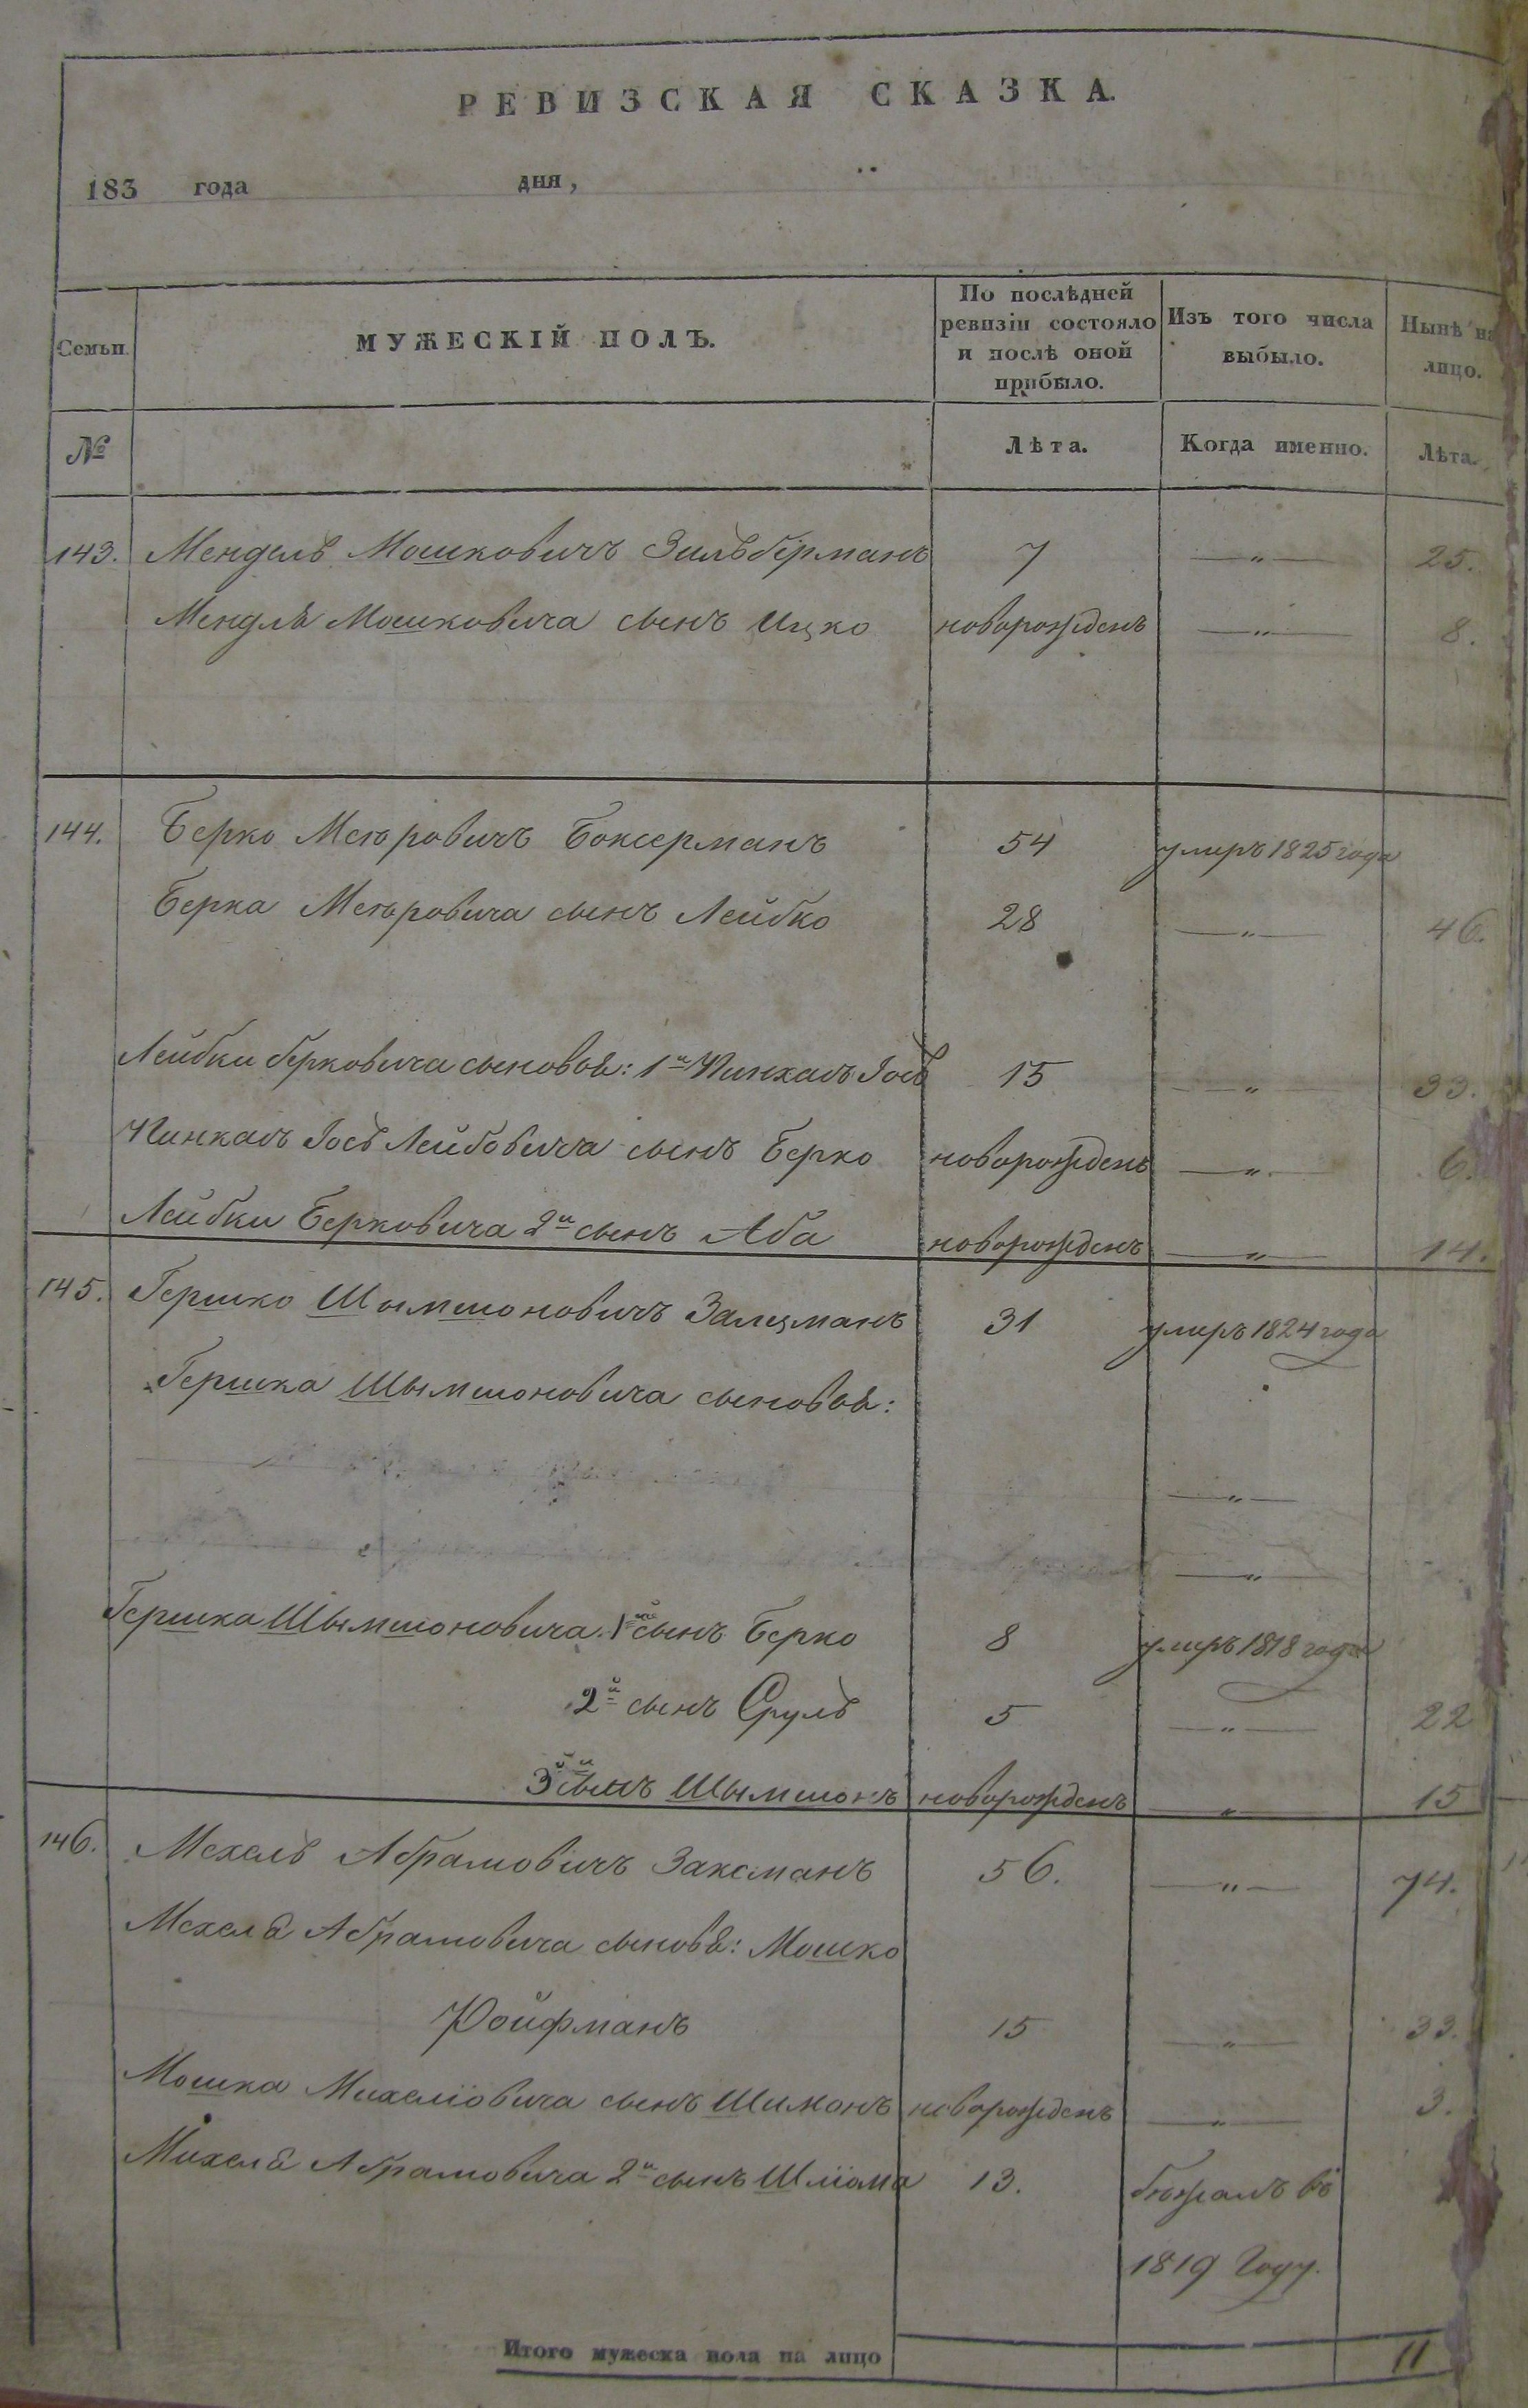 РЕВИЗСКАЯ СКАЗКА.
183 года дня,
Семьи. МУЖЕСКІЙ ПОЛЪ. По послѣдней ревизіи состояло и послѣ оной прибыло. Изъ того числа выбыло. Нынѣ на лицо.
№ Лѣта. Когда именно. Лѣта.
143. Мендель Мошковичъ Зильберманъ 7 — „ — 25.
Менделя Мошковича сынъ Ицко новорожденъ — „ — 8.
144. Берко Меіоровичъ Боксерманъ 54 умиръ 1825 года
Берка Меіоровича сынъ Лейбко 28 — „ — 46.
Лейбки Берковича сыновья: 1й Пинхасъ Іось 15 — „ — 33.
Пинкасъ Іось Лейбовича сынъ Берко новорожденъ — „ — 6.
Лейбки Берковича 2й сынъ Аба новорожденъ — „ — 14.
145. Гершко Шымшоновичъ Залцманъ 31 умиръ 1824 года
Гершка Шымшоновича сыновья:
— „ —
— „ —
Гершка Шымшоновича 1й сынъ Берко 8 умиръ 1818 года
2й сынъ Сруль 5 — „ — 22
3й сынъ Шымшонъ новорожденъ — „ — 15
146. Мехель Абрамовичъ Заксманъ 56. — „ — 74.
Мехеля Абрамовича сыновя: Мошко
Ройфманъ 15 — „ — 33.
Мошка Михеліовича сынъ Шимонъ новорожденъ — „ — 3.
Михеля Абрамовича 2й сынъ Шліома 13. бѣжалъ въ
1819 Году.
Итого мужеска пола на лицо 11